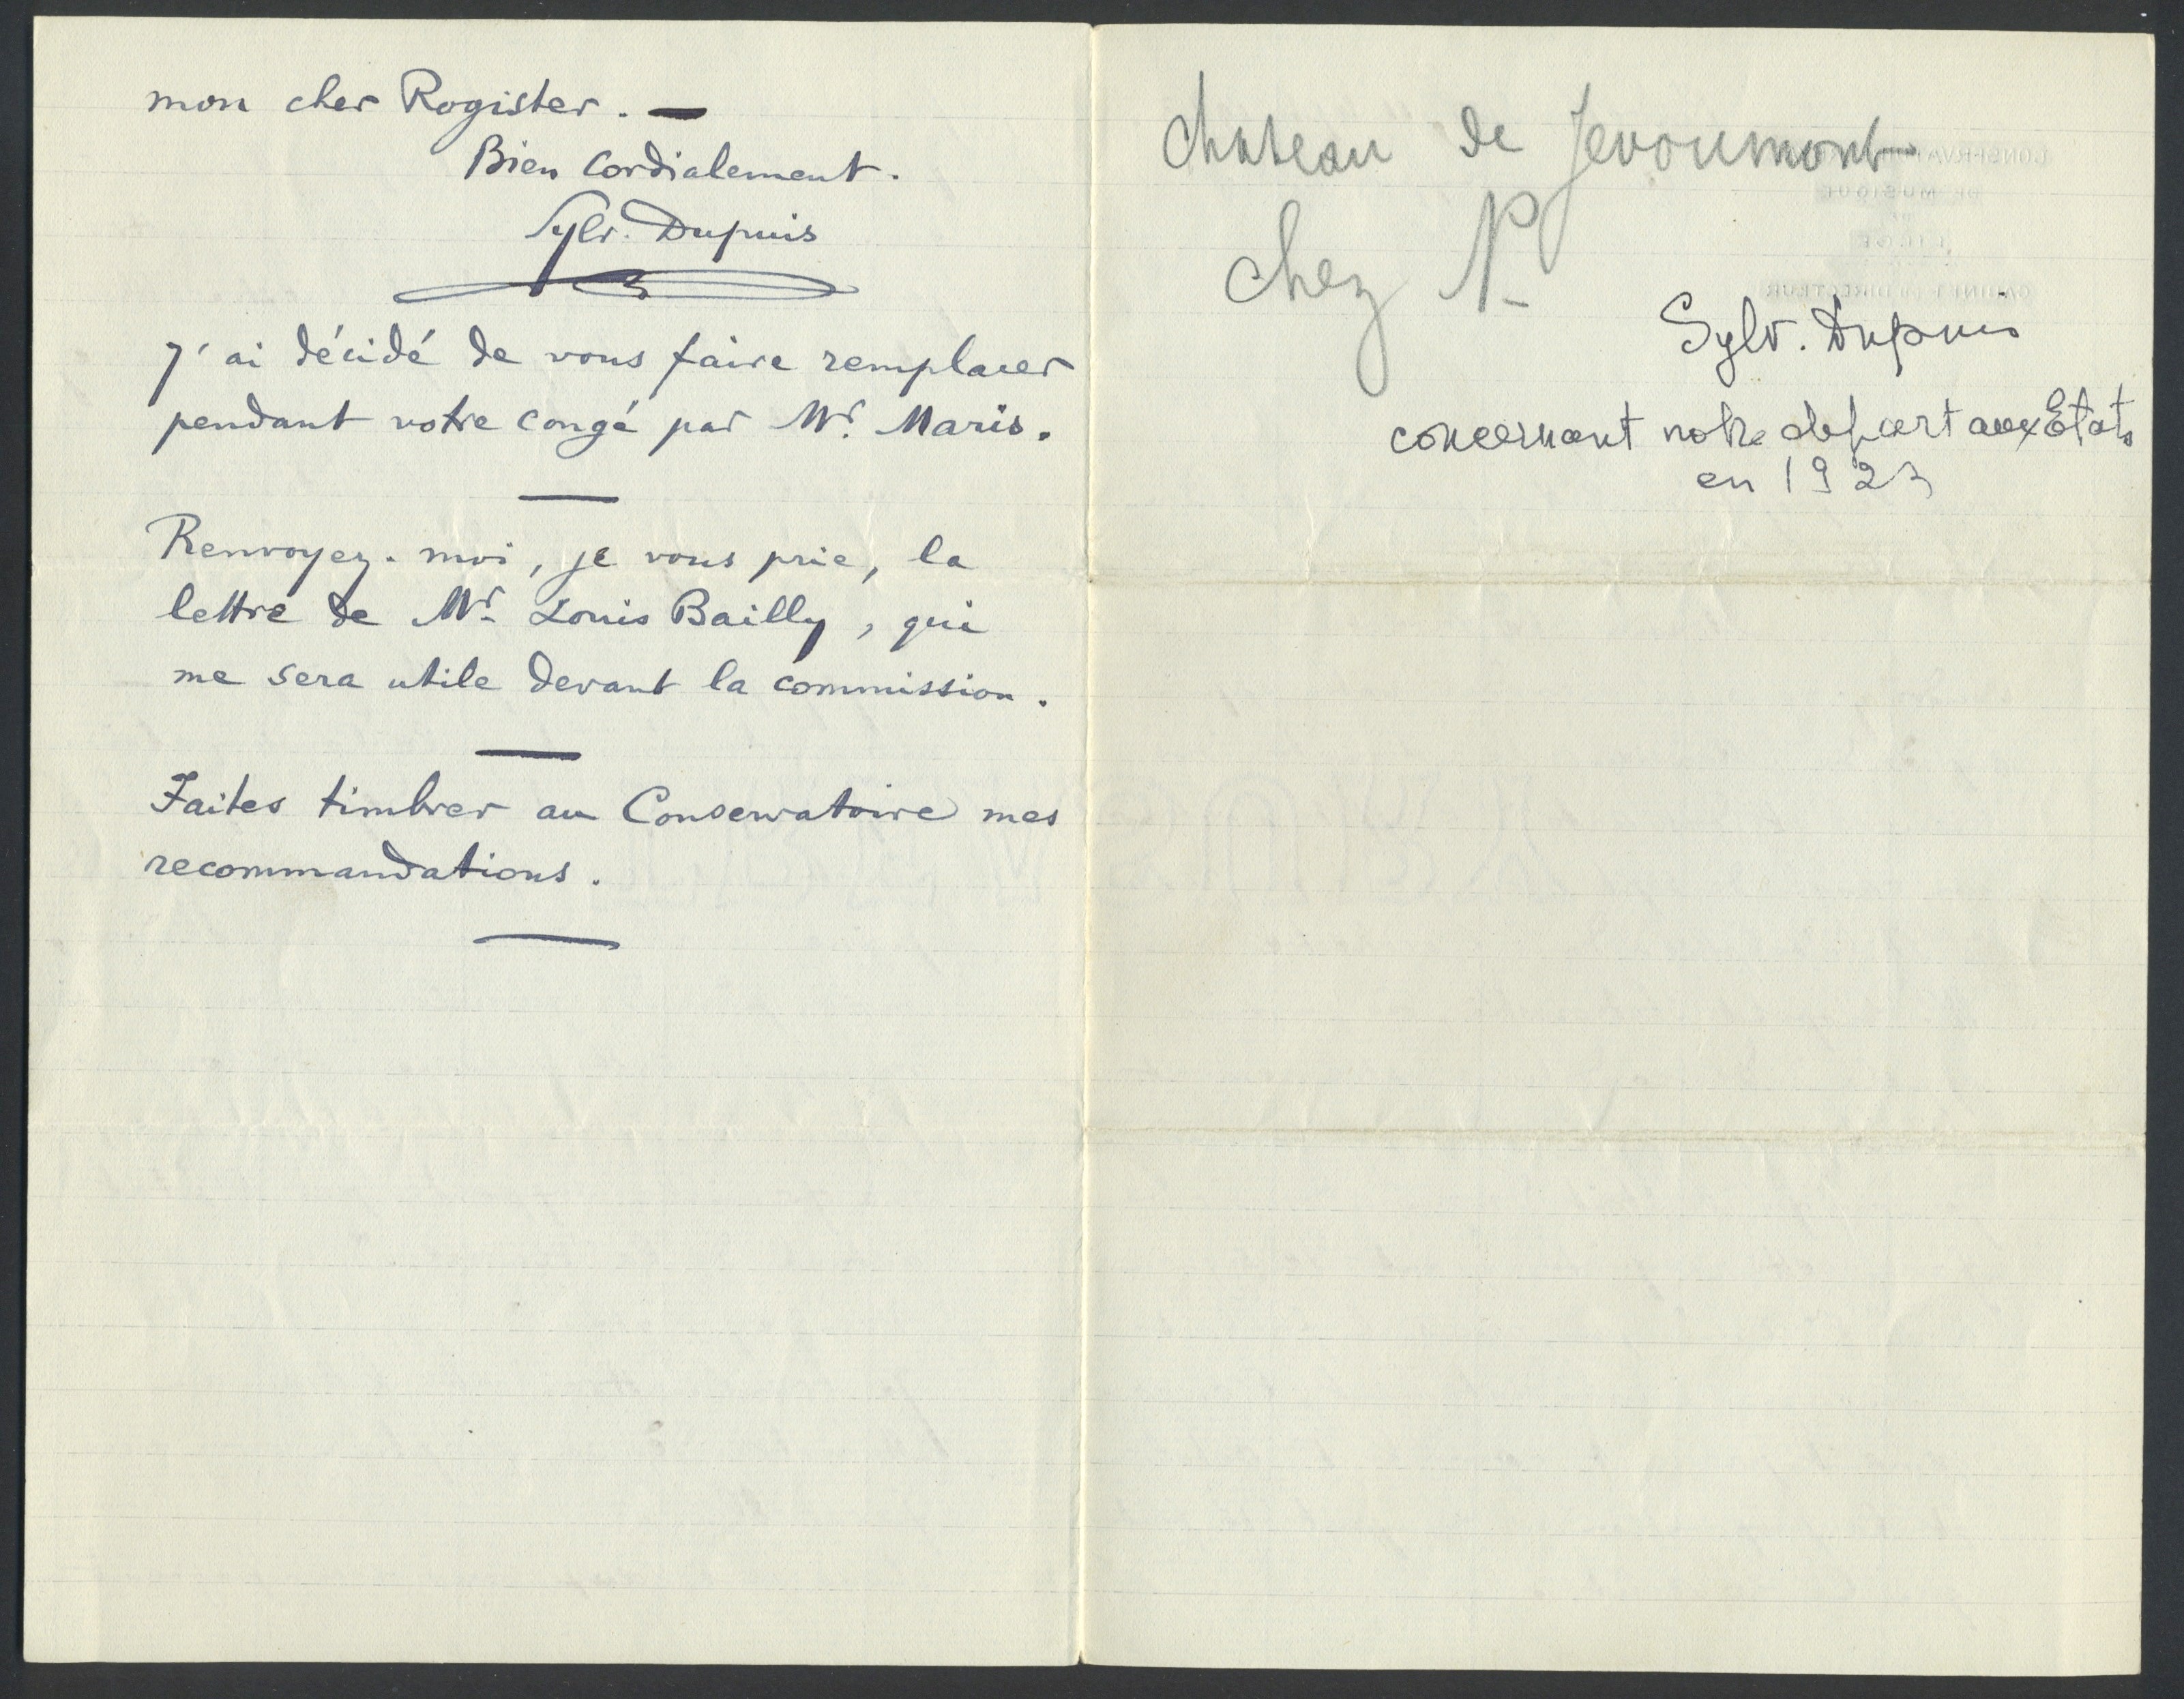 mon cher Rogister. —
Bien cordialement.
Sylv. Dupuis
J'ai décidé de vous faire remplacer
pendant votre congé par Mr. Maris.
Renvoyez-moi, je vous prie, la
lettre de Mr. Louis Bailly, qui
me sera utile devant la commission.
Faites timbrer au Conservatoire mes
recommandations.
Chateau de Jevoumont
chez
Sylv. Dupuis
concernant notre depart aux Etats
en 1923
CONSERVATOIRE
DE MUSIQUE
DE
LIÈGE
CABINET DU DIRECTEUR